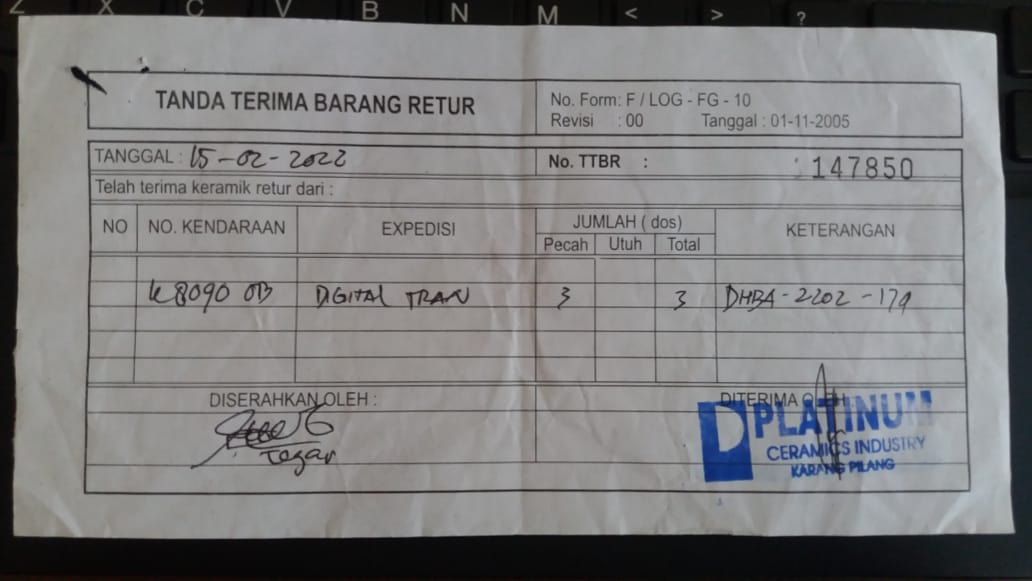 Z X C V B N M < > ?
TANDA TERIMA BARANG RETUR
No. Form: F / LOG - FG - 10
Revisi : 00 Tanggal : 01-11-2005
TANGGAL : 15-02-2022
No. TTBR : 147850
Telah terima keramik retur dari :
NO NO. KENDARAAN EXPEDISI JUMLAH ( dos) KETERANGAN
Pecah Utuh Total
K 8090 OB DIGITAL TRAN 3 3 DHBA-2202-179
DISERAHKAN OLEH : DITERIMA OLEH
Tegar
PLATINUM
CERAMICS INDUSTRY
KARANG PILANG